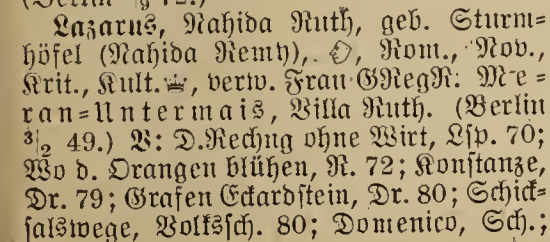 Lazarus, Nahida Ruth, geb. Sturm-
höfel (Nahida Remy), Rom., Nov.,
Krit., Kult. verw. Frau GRegR: Me-
ran-Untermais, Villa Ruth. (Berlin
3/2 49.) V: D.Rechng ohne Wirt, Lsp. 70;
Wo d. Orangen blühen, R. 72; Konstanze,
Dr. 79; Grafen Eckardstein, Dr. 80; Schick-
salswege, Volkssch. 80; Domenico, Sch.;